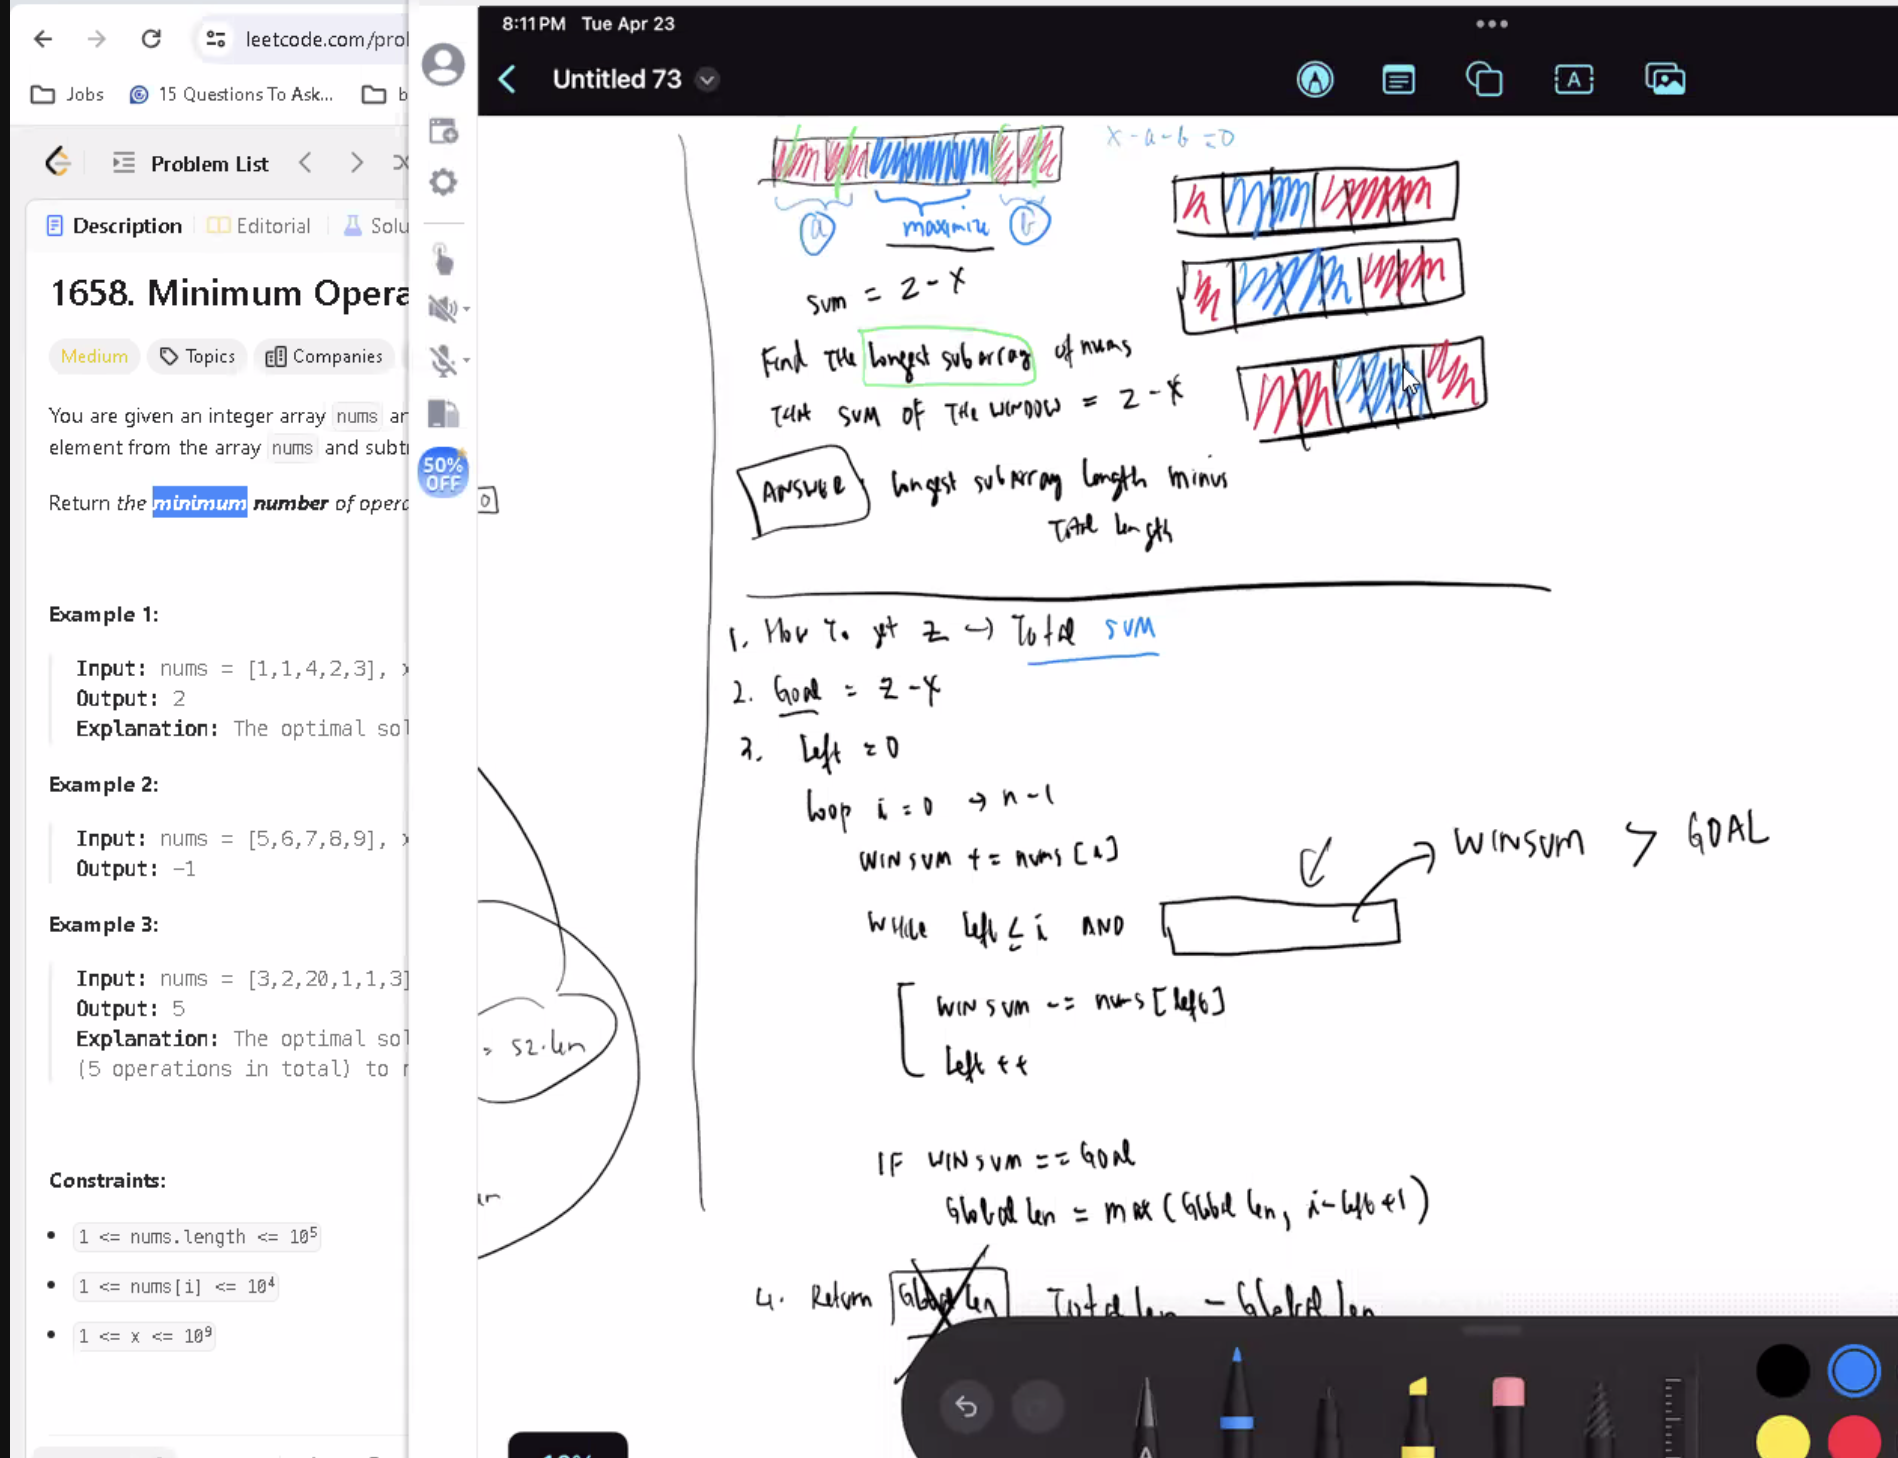 leetcode.com/prol
Jobs
15 Questions To Ask...
b
Problem List
Description
Editorial
Solu
1658. Minimum Opera
Medium
Topics
Companies
You are given an integer array nums ar
element from the array nums and subtr
Return the minimum number of opera
Example 1:
Input: nums = [1,1,4,2,3], x
Output: 2
Explanation: The optimal sol
Example 2:
Input: nums = [5,6,7,8,9], x
Output: -1
Example 3:
Input: nums = [3,2,20,1,1,3]
Output: 5
Explanation: The optimal sol
(5 operations in total) to r
Constraints:
1 <= nums.length <= 10⁵
1 <= nums[i] <= 10⁴
1 <= x <= 10⁹
50% OFF
8:11 PM Tue Apr 23
Untitled 73
A
x - a - b = 0
a
maximize
b
sum = z - x
Find the longest subarray of nums
that sum of the window = z - x
ANSWER longest subarray length minus
total length
0
1. How to get z → Total sum
2. Goal = z - x
3. left = 0
loop i = 0 → n - 1
WINSUM += nums[i]
WHILE left ≤ i AND
WINSUM > GOAL
WINSUM -= nums[left]
left ++
= s2.len
IF WINSUM == GOAL
Global len = max(Global len, i - left + 1)
4. Return Global len Total len - Global len